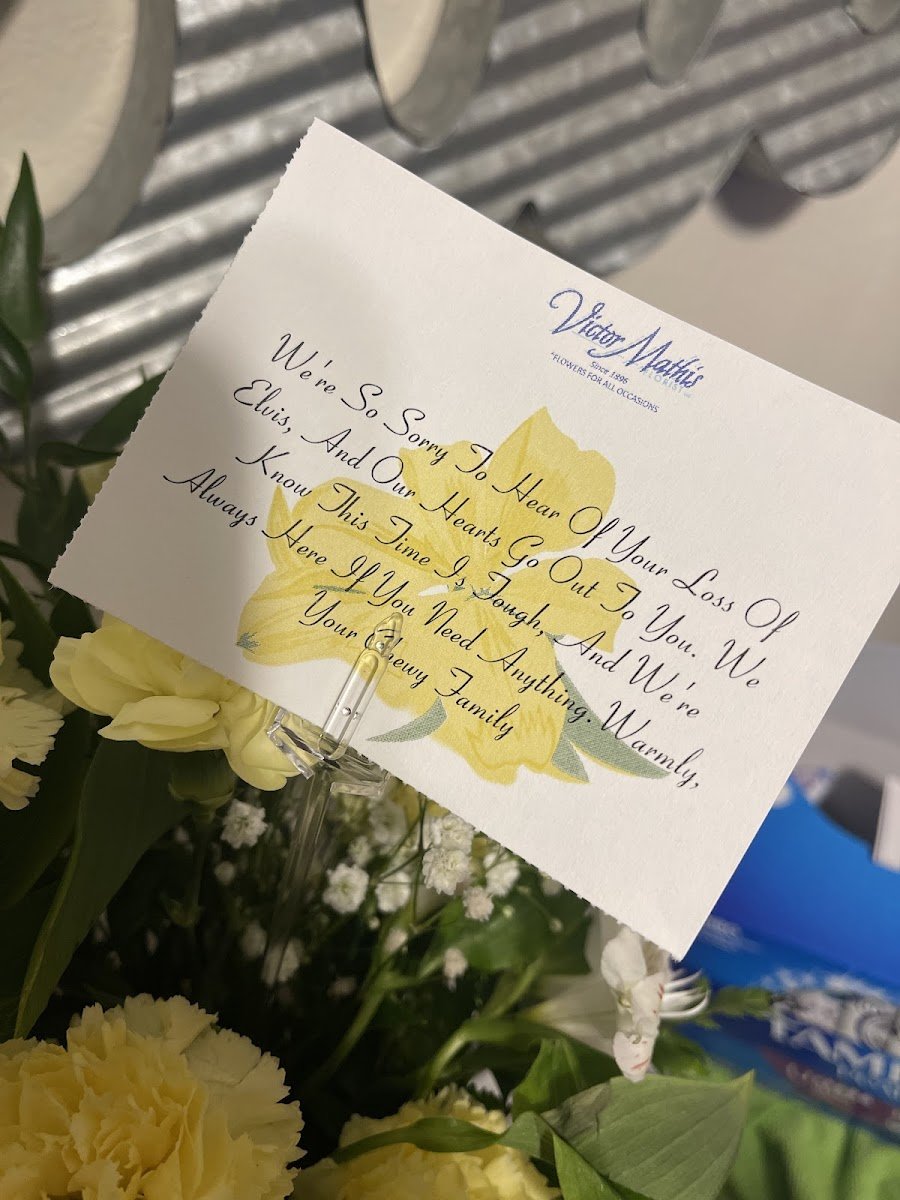 Victor Mathis
FLORIST
Since 1896
"FLOWERS FOR ALL OCCASIONS
We're So Sorry To Hear Of Your Loss Of
Elvis, And Our Hearts Go Out To You. We
Know This Time Is Tough, And We're
Always Here If You Need Anything. Warmly,
Your Chewy Family